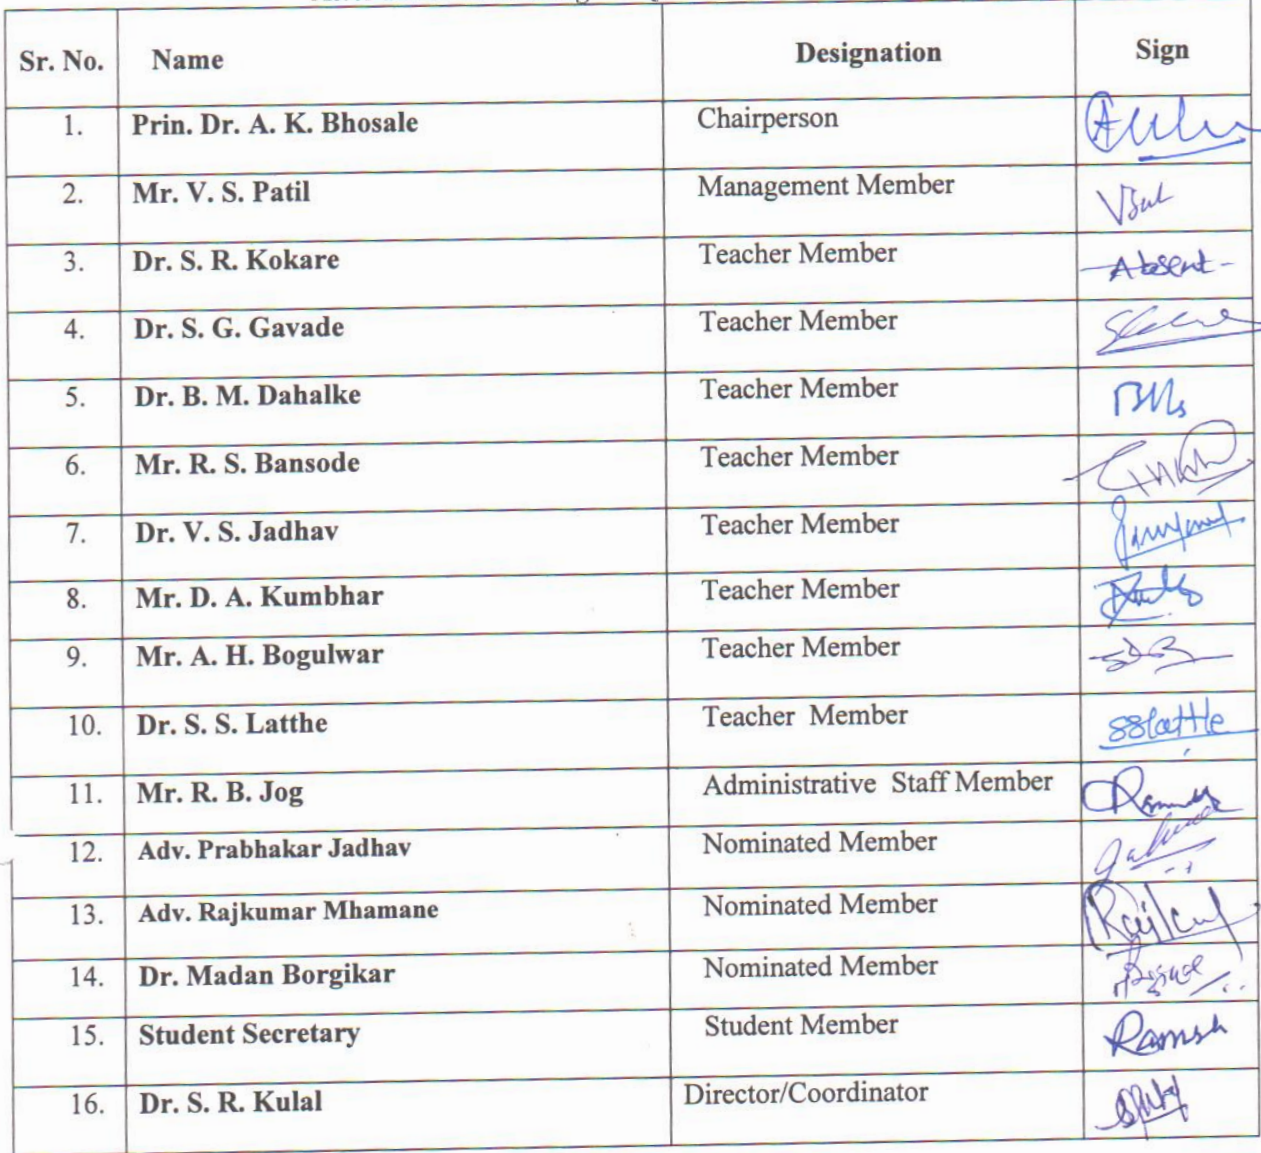 Sr. No. Name Designation Sign
1. Prin. Dr. A. K. Bhosale Chairperson
2. Mr. V. S. Patil Management Member
3. Dr. S. R. Kokare Teacher Member Absent
4. Dr. S. G. Gavade Teacher Member
5. Dr. B. M. Dahalke Teacher Member
6. Mr. R. S. Bansode Teacher Member
7. Dr. V. S. Jadhav Teacher Member
8. Mr. D. A. Kumbhar Teacher Member
9. Mr. A. H. Bogulwar Teacher Member
10. Dr. S. S. Latthe Teacher Member SSlatthe
11. Mr. R. B. Jog Administrative Staff Member
12. Adv. Prabhakar Jadhav Nominated Member
13. Adv. Rajkumar Mhamane Nominated Member
14. Dr. Madan Borgikar Nominated Member
15. Student Secretary Student Member
16. Dr. S. R. Kulal Director/Coordinator